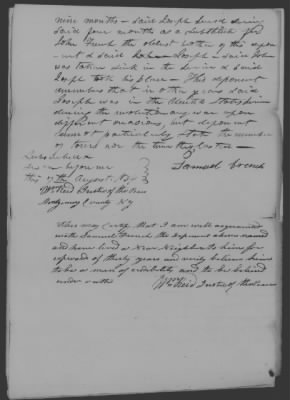 nine months - said Joseph served during
said four months as a substitute for
John French the oldest brother of this depon-
ent & said Joseph - said John
was taken sick in the service & said
Joseph took his place - This deponent
remembers that in other years said
Joseph was in the United States service
during the revolutionary war upon
different occasions but deponent
cannot particularly state the number
of tours nor the time they lasted -
Subscribed &
sworn before me
this 17th August
Samuel French
Wm Reid Justice of the Peace
Montgomery County NY
This may certify that I am well acquainted
with Samuel French the deponent above named
and have lived a Near Neighbor to him for
upwards of thirty years and verily believe him
to be a man of credibility and to be believed
under oath
Wm Reid Justice of the Peace